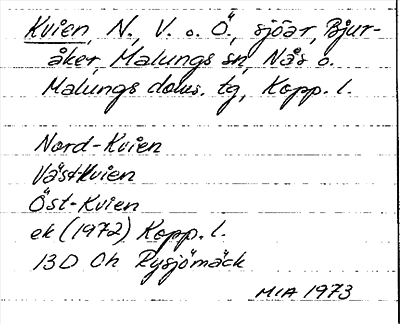 Kvien, N., V. o. Ö., sjöar, Bjur-
åker, Malungs sn, Nås o.
Malungs doms. tg, Kopp. l.
Nord-Kvien
Väst-Kvien
Öst-Kvien
ek (1972) Kopp. l.
13D 0h Rysjömäck
MIA 1973